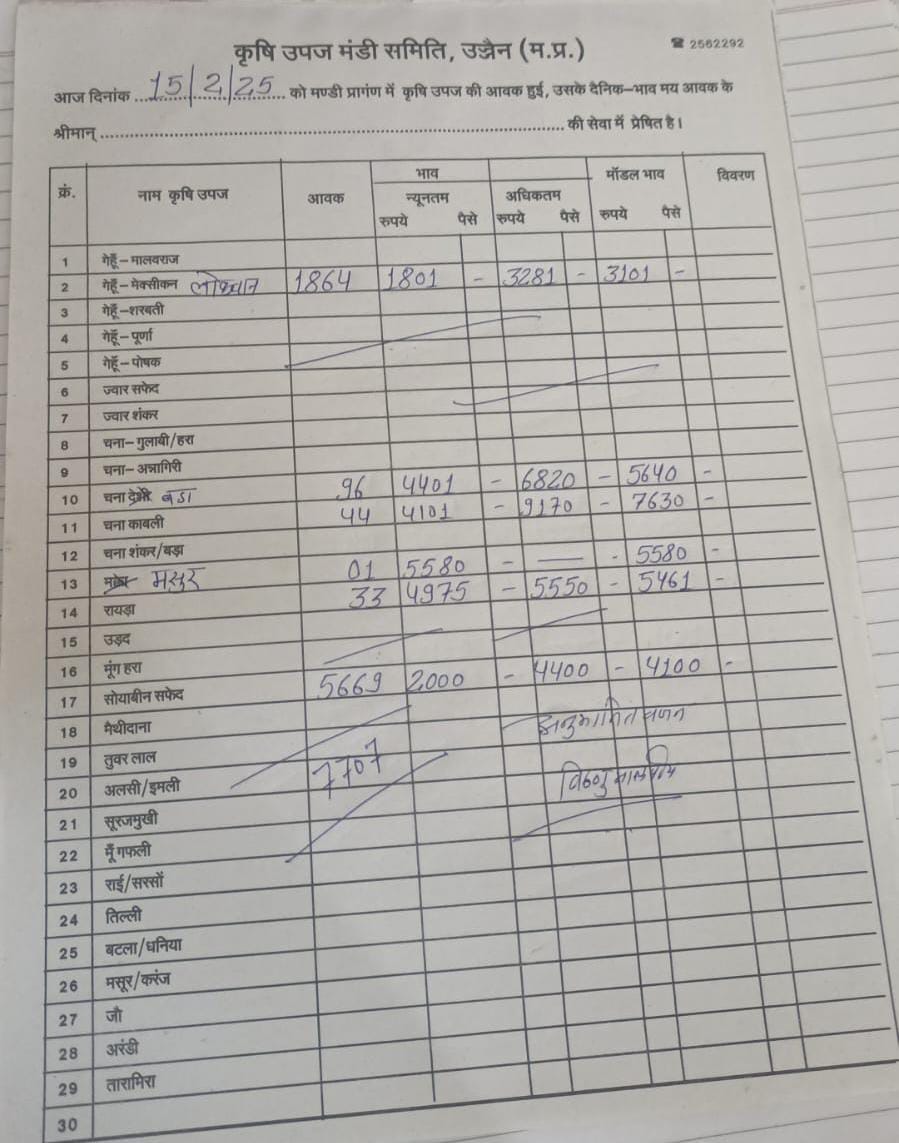 कृषि उपज मंडी समिति, उज्जैन (म.प्र.) ☎ 2562292
आज दिनांक 15/2/25 को मण्डी प्रागंण में कृषि उपज की आवक हुई, उसके दैनिक–भाव मय आवक के
श्रीमान् ........ की सेवा में प्रेषित है।
क्रं. नाम कृषि उपज आवक भाव मॉडल भाव विवरण
न्यूनतम अधिकतम
रुपये पैसे रुपये पैसे रुपये पैसे
1 गेहूँ – मालवराज
2 गेहूँ – मेक्सीकन लोकवान 1864 1801 - 3281 - 3101 -
3 गेहूँ –शरबती
4 गेहूँ – पूर्णा
5 गेहूँ – पोषक
6 ज्वार सफेद
7 ज्वार शंकर
8 चना– गुलाबी/हरा
9 चना– अन्नागिरी
10 चना बडा 96 4401 - 6820 - 5640 -
11 चना काबली 44 4101 - 9170 - 7630 -
12 चना शंकर/बड़ा
13 मसुर 01 5580 - — - 5580 -
14 रायड़ा 33 4975 - 5550 - 5461 -
15 उड़द
16 मूंग हरा
17 सोयाबीन सफेद 5669 2000 - 4400 - 4100 -
18 मैथीदाना अनुमानित वजन
19 तुवर लाल
20 अलसी/इमली 7707 विष्णु
21 सूरजमुखी
22 मूँगफली
23 राई/सरसों
24 तिल्ली
25 बटला/धनिया
26 मसूर/करंज
27 जौ
28 अरंडी
29 तारामिरा
30